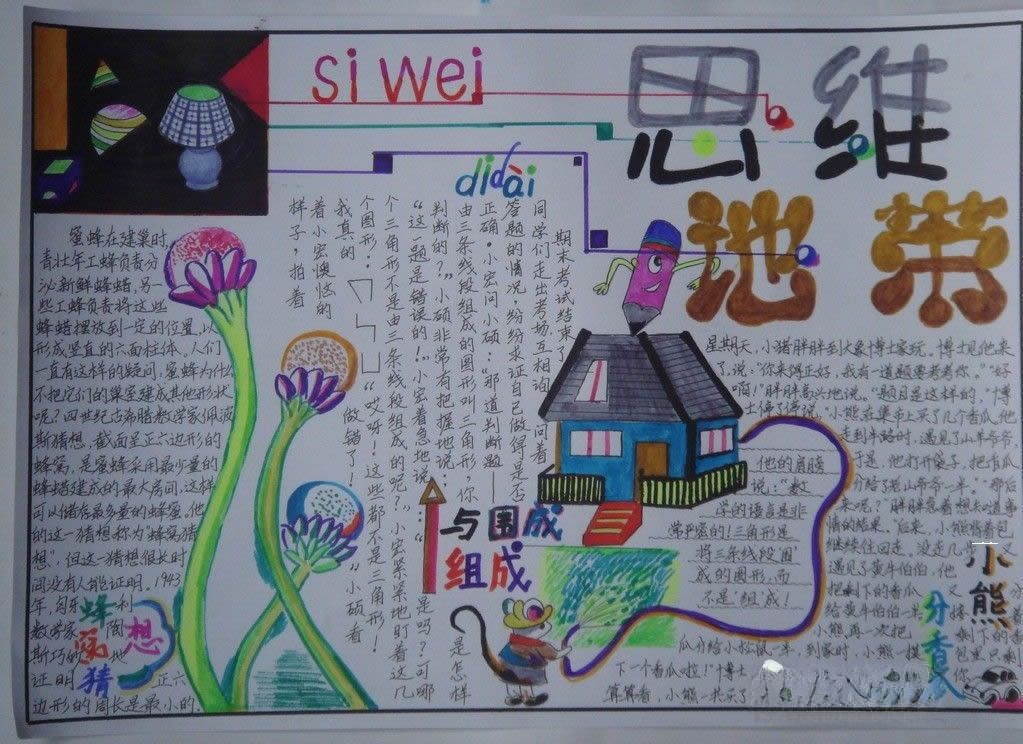 si wei
思维
didài
地带
蜜蜂在建巢时,
青壮年工蜂负责分
泌新鲜蜂蜡,另一
些工蜂负责将这些
蜂蜡摆放到一定的位置,以
形成竖直的六面柱体。人们
一直有这样的疑问,蜜蜂为什么
不把它们的巢室建成其他形状
呢?四世纪古希腊数学家佩波
斯猜想,截面呈正六边形的
蜂窝,是蜜蜂采用最少量的
蜂蜡建成的最大房间,这样
可以储存最多量的蜂蜜。他
的这一猜想称为"蜂窝猜
想",但这一猜想很长时
间没有人能证明。1943
年,匈牙利
数学家 陶
斯巧 地
证明 正六
边形的周长是最小的.
蜂窝猜想
期末考试结束了
同学们走出考场互相询问着
答题的情况,纷纷求证自己做得是否
正确。小宏问小硕:"那道判断题——
由三条线段组成的图形叫三角形,你
是怎样
判断的?"小硕非常有把握地说:
"这一题是错误的!"小宏着急地说:"是吗?可哪
个三角形不是由三条线段组成的呢?"小宏紧紧地盯着这几
个图形: "哎呀!这些都不是三角形!
我真的 做错了!"小硕看
着小宏懊恼的
样子,拍着
他的肩膀
说:"数
学的语言是非
常严密的!三角形是
将三条线段'围'
成的图形,而
不是'组'成!
与围成
组成
星期天,小猪胖胖到大象博士家玩。博士见他来
了,说:"你来得正好,我有一道题要考考你。""好
啊!"胖胖高兴地说。"题目是这样的,"博
士慢慢说,"小熊在集市上买了几个香瓜,他
走到半路时,遇见了小羊爷爷,
于是,他打开袋子,把香瓜
分给了老山羊爷爷一半。""那后
来呢?"胖胖急着想知道事
情的结果。"后来,小熊背着包
继续往回走,没走几步,又
遇见了黄牛伯伯,他
把剩下的香瓜 又 分
给黄牛伯伯一半
小熊再一次把 剩下的香
瓜分给小松鼠一半,到家时,小熊一摸 包里只剩
下一个香瓜啦!"博士 你
算算看,小熊一共买了
小熊
分香瓜